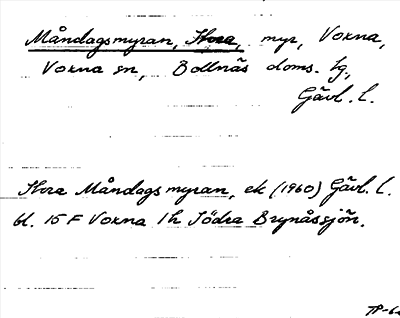 Måndagsmyran, Stora, myr, Voxna,
Voxna sn, Bollnäs doms. lg,
Gävl. l.
Stora Måndagsmyran, ek (1960) Gävl. l.
bl. 15 F Voxna 1 h Södra Brynåssjön.